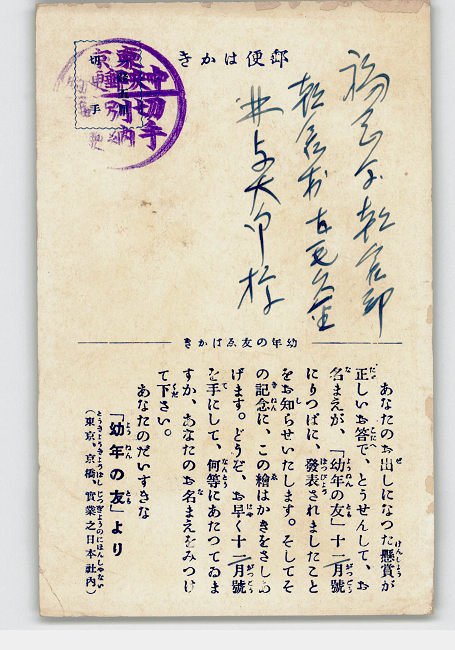 郵便はかき
切手
中央
切手
別納
福岡県
様
幼年の友ゑはかき
あなたのお出しになつた懸賞が
正しいお答で、とうせんして、お
名まえが、「幼年の友」十二月號
にりつぱに、發表されましたこと
をお知らせいたします。そしてそ
の記念に、この繪はかきをさしあ
げます。どうぞ、お早く十二月號
を手にして、何等にあたつてゐま
すか、あなたのお名まえをみつけ
て下さい。
あなたのだいすきな
「幼年の友」より
(東京、京橋、實業之日本社内)